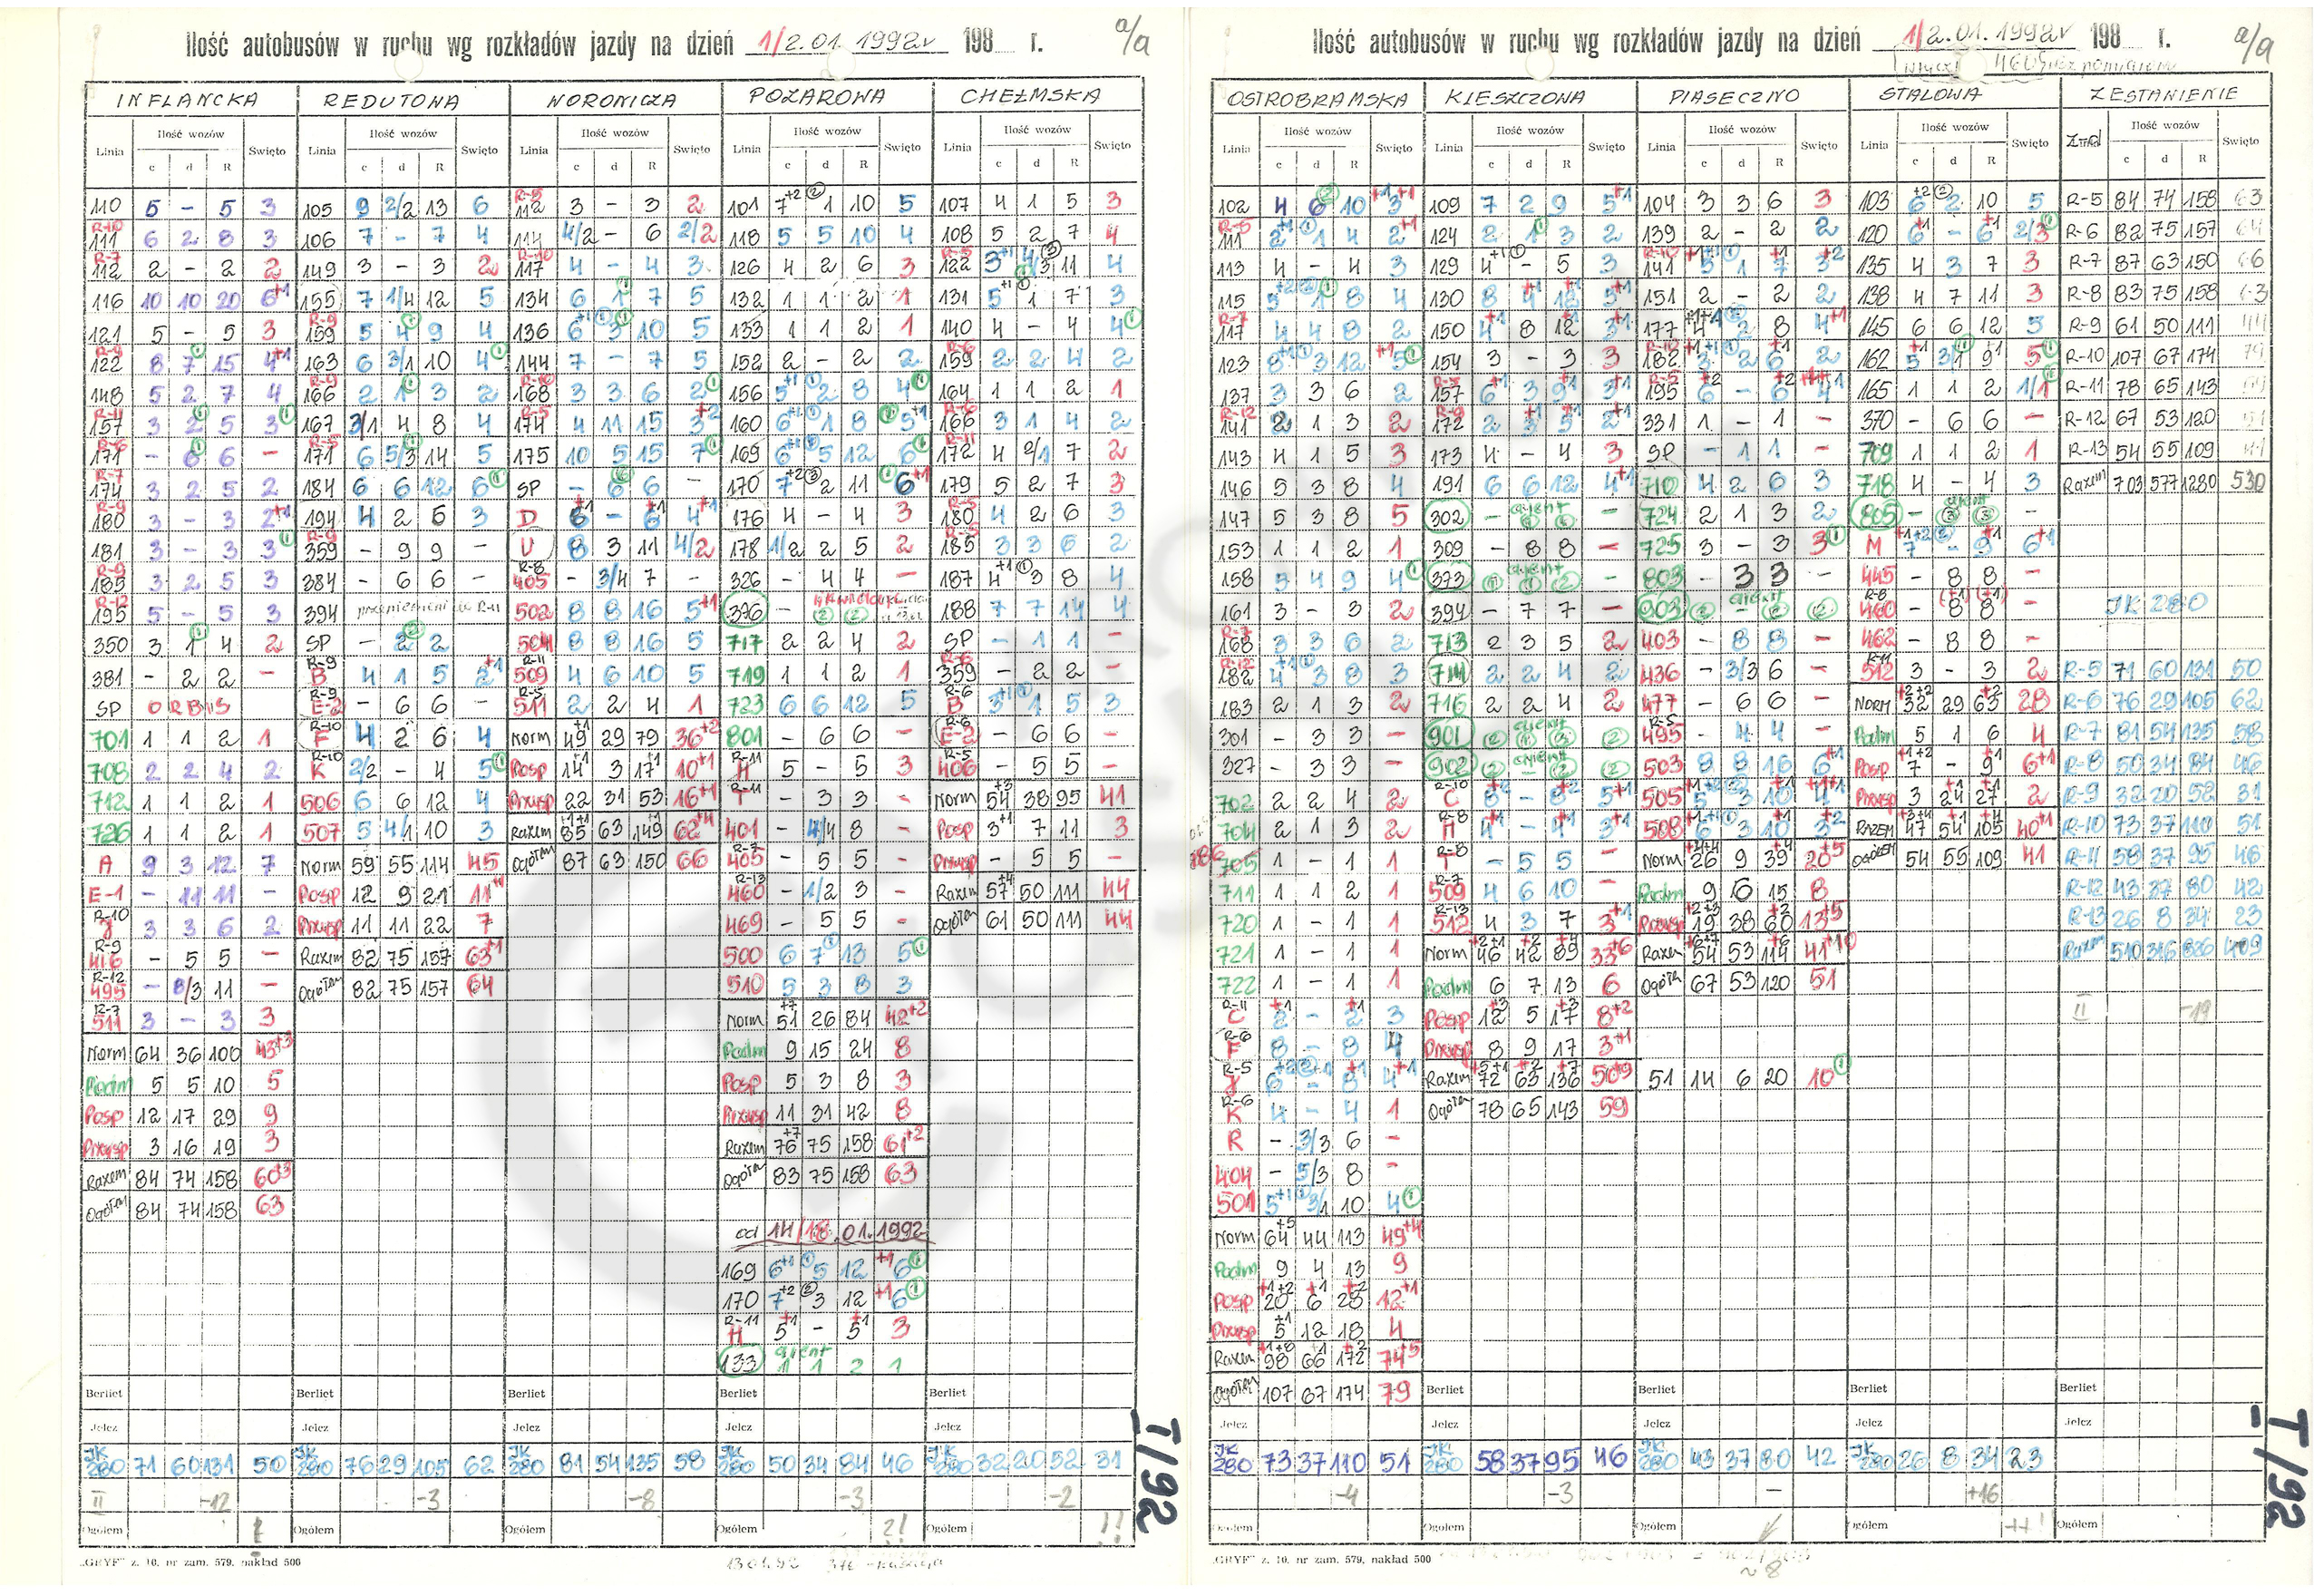 Ilość autobusów w ruchu wg rozkładów jazdy na dzień 1/2.01.1992r 198 r. a/a
INFLANCKA REDUTOWA WORONICZA POŻAROWA CHEŁMSKA
Linia Ilość wozów Święto Linia Ilość wozów Święto Linia Ilość wozów Święto Linia Ilość wozów Święto Linia Ilość wozów Święto
c d R c d R c d R c d R c d R
110 5 - 5 3 105 9 2/2 13 6 R-8 112 3 - 3 2 101 7+2 (2) 1 10 5 107 4 1 5 3
R-10 111 6 2 8 3 106 7 - 7 4 114 4/2 - 6 2/2 118 5 5 10 4 108 5 2 7 4
R-7 112 2 - 2 2 149 3 - 3 2 R-10 117 4 - 4 3 126 4 2 6 3 R-5 122 3+1 4/3 11 4
116 10 10 20 6+1 155 7 1/4 12 5 134 6 1 7 5 132 1 1 2 1 131 5+1 1 7 3
121 5 - 5 3 R-9 159 5 4 9 4 136 6+1 3 10 5 133 1 1 2 1 140 4 - 4 4
R-9 122 8 7 15 4+1 163 6 3/1 10 4 144 7 - 7 5 152 2 - 2 2 R-6 159 2 2 4 2
148 5 2 7 4 R-9 166 2 1 3 2 R-10 168 3 3 6 2 156 5+1 2 8 4 164 1 1 2 1
R-11 157 3 2 5 3 167 3/1 4 8 4 R-5 174 4 11 15 3+2 160 6+1 1 8 5+1 R-6 166 3 1 4 2
R-6 171 - 6 6 - R-5 171 6 5/3 14 5 175 10 5 15 7 169 6+1 5 12 6 R-11 172 4 2/1 7 2
R-7 174 3 2 5 2 184 6 6 12 6 SP - 6 6 - 170 7+2 2 11 6+1 179 5 2 7 3
R-9 180 3 - 3 2+1 194 4 2 6 3 D 6+1 - 6+1 4+1 176 4 - 4 3 R-5 180 4 2 6 3
181 3 - 3 3 R-9 359 - 9 9 - U 8 3 11 4/2 178 1/2 2 5 2 R-5 185 3 3 6 2
R-9 185 3 2 5 3 384 - 6 6 - R-8 405 - 3/4 7 - 326 - 4 4 - 187 4+1 3 8 4
R-12 195 5 - 5 3 394 502 8 8 16 5+1 396 - (2) (2) 188 7 7 14 4
350 3 1 4 2 SP - 2 2 504 8 8 16 5 717 2 2 4 2 SP - 1 1 -
381 - 2 2 - R-9 B 4 1 5 2+1 R-11 509 4 6 10 5 719 1 1 2 1 R-6 359 - 2 2 -
SP ORBIS R-9 E-2 - 6 6 - R-5 511 2 2 4 1 723 6 6 12 5 R-6 B 3+1 1 5 3
701 1 1 2 1 R-10 F 4 2 6 4 Norm 49+1 29 79 36+2 801 - 6 6 - R-6 E-2 - 6 6 -
708 2 2 4 2 R-10 K 2/2 - 4 5 Posp 14+1 3 17+1 10+1 R-11 H 5 - 5 3 R-5 406 - 5 5 -
712 1 1 2 1 506 6 6 12 4 Przysp 22 31 53 16+1 R-11 T - 3 3 - Norm 54+3 38 95 41
726 1 1 2 1 507 5 4/1 10 3 Razem 85+1+1 63 149+1 62+4 401 - 4/4 8 - Posp 3+1 7 11 3
A 9 3 12 7 Norm 59 55 114 45 Ogółem 87 63 150 66 R-7 405 - 5 5 - Przysp - 5 5 -
E-1 - 11 11 - Posp 12 9 21 11+1 R-13 460 - 1/2 3 - Razem 57+4 50 111 44
R-10 J 3 3 6 2 Przysp 11 11 22 7 469 - 5 5 - Ogółem 61 50 111 44
R-9 416 - 5 5 - Razem 82 75 157 63+1 500 6 7 13 5
R-12 495 - 8/3 11 - Ogółem 82 75 157 64 510 5 3 8 3
R-7 511 3 - 3 3 Norm 51+7 26 84 42+2
Norm 64 36 100 43+3 Podm 9 15 24 8
Podm 5 5 10 5 Posp 5 3 8 3
Posp 12 17 29 9 Przysp 11 31 42 8
Przysp 3 16 19 3 Razem 76+7 75 158 61+2
Razem 84 74 158 60+3 Ogółem 83 75 158 63
Ogółem 84 74 158 63
od 14/18.01.1992
169 6+1 (1) 5 12 +1 6 (1)
170 7+2 (2) 3 12 +1 6 (1)
R-11 H 5+1 - 5+1 3
133 ajent 1 1 2 1
Berliet Berliet Berliet Berliet Berliet
Jelcz Jelcz Jelcz Jelcz Jelcz
JK 280 71 60 131 50 JK 280 76 29 105 62 JK 280 81 54 135 58 JK 280 50 34 84 46 JK 280 32 20 52 31
II -12 -3 -8 -3 -2
Ogółem Ogółem Ogółem Ogółem 2! Ogółem !!
„GRYF" z. 10. nr zam. 579. nakład 500
T/92
Ilość autobusów w ruchu wg rozkładów jazdy na dzień 1/2.01.1992r 198 r. a/a
OSTROBRAMSKA KLESZCZOWA PIASECZNO STALOWA ZESTAWIENIE
Linia Ilość wozów Święto Linia Ilość wozów Święto Linia Ilość wozów Święto Linia Ilość wozów Święto Zakł Ilość wozów Święto
c d R c d R c d R c d R c d R
102 4 6 10 3+1+1 109 7 2 9 5+1 104 3 3 6 3 103 6+2 (2) 2 10 5 R-5 84 74 158 63
R-5 111 2+1 1 4 2+1 124 2 1 3 2 139 2 - 2 2 120 6+1 - 6+1 2/3 R-6 82 75 157 64
113 4 - 4 3 129 4+1 - 5 3 R-10 141 5 1 7 3+2 135 4 3 7 3 R-7 87 63 150 66
115 5 1 8 4 130 8 4+1 12+1 5+1 151 2 - 2 2 138 4 7 11 3 R-8 83 75 158 63
R-7 117 4 4 8 2 150 4+1 8 12+1 3+1 177 4 2 8 4+1 145 6 6 12 5 R-9 61 50 111 44
123 8+1 3 12 +1 5 154 3 - 3 3 R-12 182 3 2 6+1 2 162 5+1 3/1 9+1 5 R-10 107 67 174 79
137 3 3 6 2 R-5 157 6+1 3 9+1 3+1 R-5 195 6+2 - 6+2 4 165 1 1 2 1/1 R-11 78 65 143 59
R-12 141 2 1 3 2 R-9 172 2 3+1 5+1 2+1 331 1 - 1 - 370 - 6 6 - R-12 67 53 120 51
143 4 1 5 3 173 4 - 4 3 SP - 1 1 - 709 1 1 2 1 R-13 54 55 109 41
146 5 3 8 4 191 6 6 12 4+1 710 4 2 6 3 718 4 - 4 3 Razem 703 577 1280 530
147 5 3 8 5 302 - ajent 724 2 1 3 2 805 - ajent (3) (3) -
153 1 1 2 1 309 - 8 8 - 725 3 - 3 3 M 7+1+2 - 9+1 6+1
158 5 4 9 4 373 ajent (1) (1) (2) - 803 - 3 3 - 445 - 8 8 -
161 3 - 3 2 394 - 7 7 - 903 (2) ajent - (2) (2) R-8 460 - 8(+1) 8(+1) - JK 280
R-7 168 3 3 6 2 713 2 3 5 2 403 - 8 8 - 462 - 8 8 -
R-12 182 4+1 3 8 3 714 2 2 4 2 436 - 3/3 6 - R-11 512 3 - 3 2 R-5 71 60 131 50
183 2 1 3 2 716 2 2 4 2 477 - 6 6 - Norm 32+2+2 29 63+2 28 R-6 76 29 105 62
301 - 3 3 - 901 (2) ajent (1) (3) (2) R-5 495 - 4 4 - Podm 5 1 6 4 R-7 81 54 135 58
327 - 3 3 - 902 (2) ajent - (2) (2) 503 8 8 16 6+1 Posp 7+1+2 - 9+1 6+1 R-8 50 34 84 46
702 2 2 4 2 R-10 C 8+2 - 8+2 5+1 505 5 3 10+1 4+1+1 Przysp 3 24+1 27+1 2 R-9 32 20 52 31
704 2 1 3 2 R-8 H 4+1 - 4+1 3+1 508 6 3 10+1 3+2 RAZEM 47+3+4 54+1 105+4 40+1 R-10 73 37 110 51
705 1 - 1 1 R-8 T - 5 5 - Norm 26+4+4 9 39+4 20+5 Ogółem 54 55 109 41 R-11 58 37 95 46
711 1 1 2 1 R-7 509 4 6 10 - Podm 9 6 15 8 R-12 43 37 80 42
720 1 - 1 1 R-13 512 4 3 7 3+1 Przysp 19+2+3 38 60+2 13+5 R-13 26 8 34 23
721 1 - 1 1 Norm 46+2+1 42+2 89+4 33+6 Razem 54+6+7 53 114+6 41+10 Razem 510 316 836 409
722 1 - 1 1 Podm 6 7 13 6 Ogółem 67 53 120 51
R-11 C 2+1 - 2+1 3 Posp 12+3 5 17+3 8+2 II -19
R-6 F 8 - 8 4 Przysp 8 9 17 3+1
R-5 J 6 - 8+1 4+1 Razem 72+5+1 63+2 136+7 50+9 51 14 6 20 10 (1)
R-6 K 4 - 4 1 Ogółem 78 65 143 59
R - 3/3 6 -
404 - 5/3 8 -
501 5+1 3/1 10 4 (1)
Norm 64+5 44 113 49+4
Podm 9 4 13 9
Posp 20+1+2 6+1 28+2 12+1
Przysp 5+1 12 18 4
Razem 98+1+8 66+1 172+2 74+5
Ogółem 107 67 174 79 Berliet Berliet Berliet Berliet
Jelcz Jelcz Jelcz Jelcz Jelcz
JK 280 73 37 110 51 JK 280 58 37 95 46 JK 280 43 37 80 42 JK 280 26 8 34 23
-4 -3 - +16
Ogółem Ogółem Ogółem Ogółem Ogółem
„GRYF" z. 10. nr zam. 579. nakład 500
~8
T/92